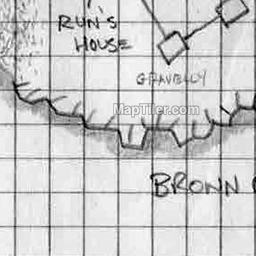 RUN'S
HOUSE
GRAVELLY
MapTiler.com
BRONN